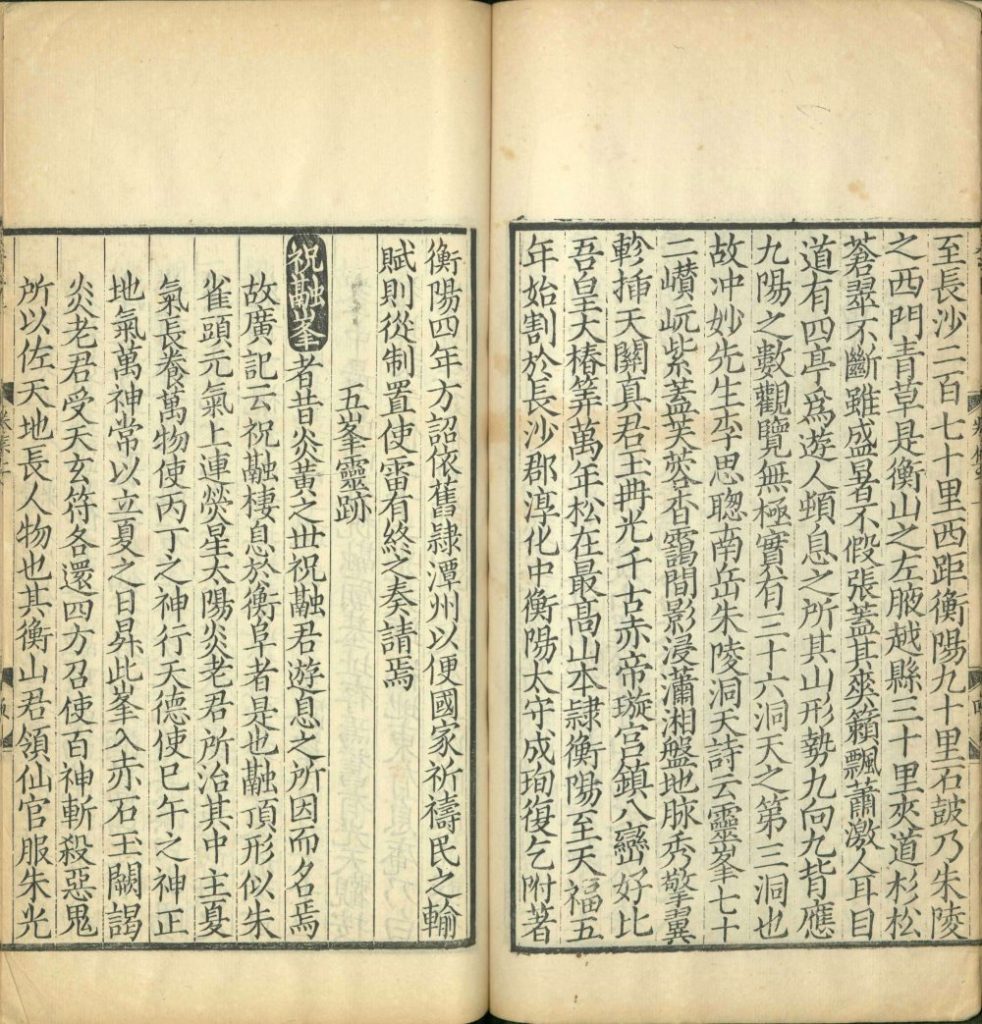 至長沙二百七十里西距衡陽九十里石鼓乃朱陵
之西門青草是衡山之左腋越縣三十里夾道杉松
蒼翠不斷雖盛暑不假張蓋其爽籟飄蕭激人耳目
道有四亭爲遊人頓息之所其山形勢九向九背應
九陽之數觀覽無極實有三十六洞天之第三洞也
故冲妙先生李思聦南岳朱陵洞天詩云靈峯七十
二巑岏紫蓋芙蓉杳靄間影浸瀟湘盤地脉秀擎翼
軫揷天關真君玉冊光千古赤帝璇宫鎮八蠻好比
吾皇大椿筭萬年松在最髙山本隷衡陽至天福五
年始割於長沙郡淳化中衡陽太守成珣復乞附著
衡陽四年方詔依舊隷潭州以便國家祈禱民之輸
賦則從制置使雷有終之奏請焉
五峯靈跡
祝融峯者昔炎黄之世祝融君遊息之所因而名焉
故廣記云祝融棲息於衡阜者是也融頂形似朱
雀頭元氣上連熒星太陽炎老君所治其中主夏
氣長養萬物使丙丁之神行天德使巳午之神正
地氣萬神常以立夏之日昇此峯入赤石玉闕謁
炎老君受天玄符各還四方召使百神斬殺惡鬼
所以佐天地長人物也其衡山君領仙官服朱光